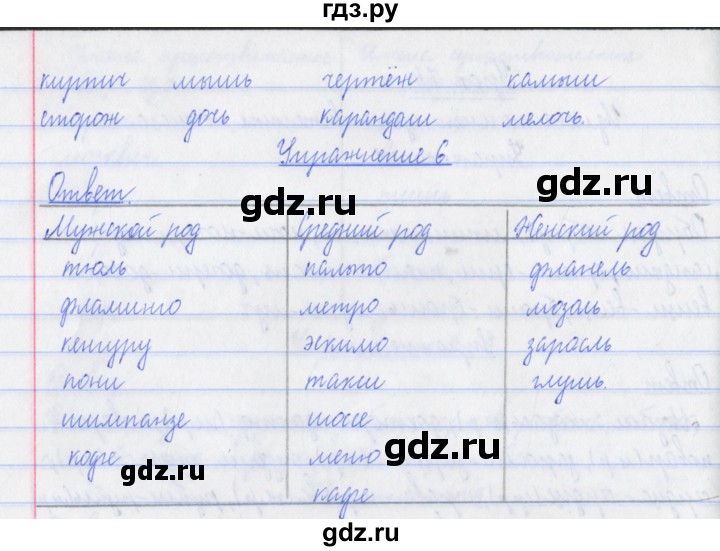 гдз.ру
кирпич мышь чертёж камыш
сторож дочь карандаш мелочь.
Упражнение 6.
Ответ.
gdz.ru gdz.ru
Мужской род Средний род Женский род
тюль пальто фланель
фламинго метро мозоль
кенгуру эскимо заросль
пони такси глушь.
шимпанзе шоссе
кофе меню
кафе
gdz.ru gdz.ru
gdz.ru